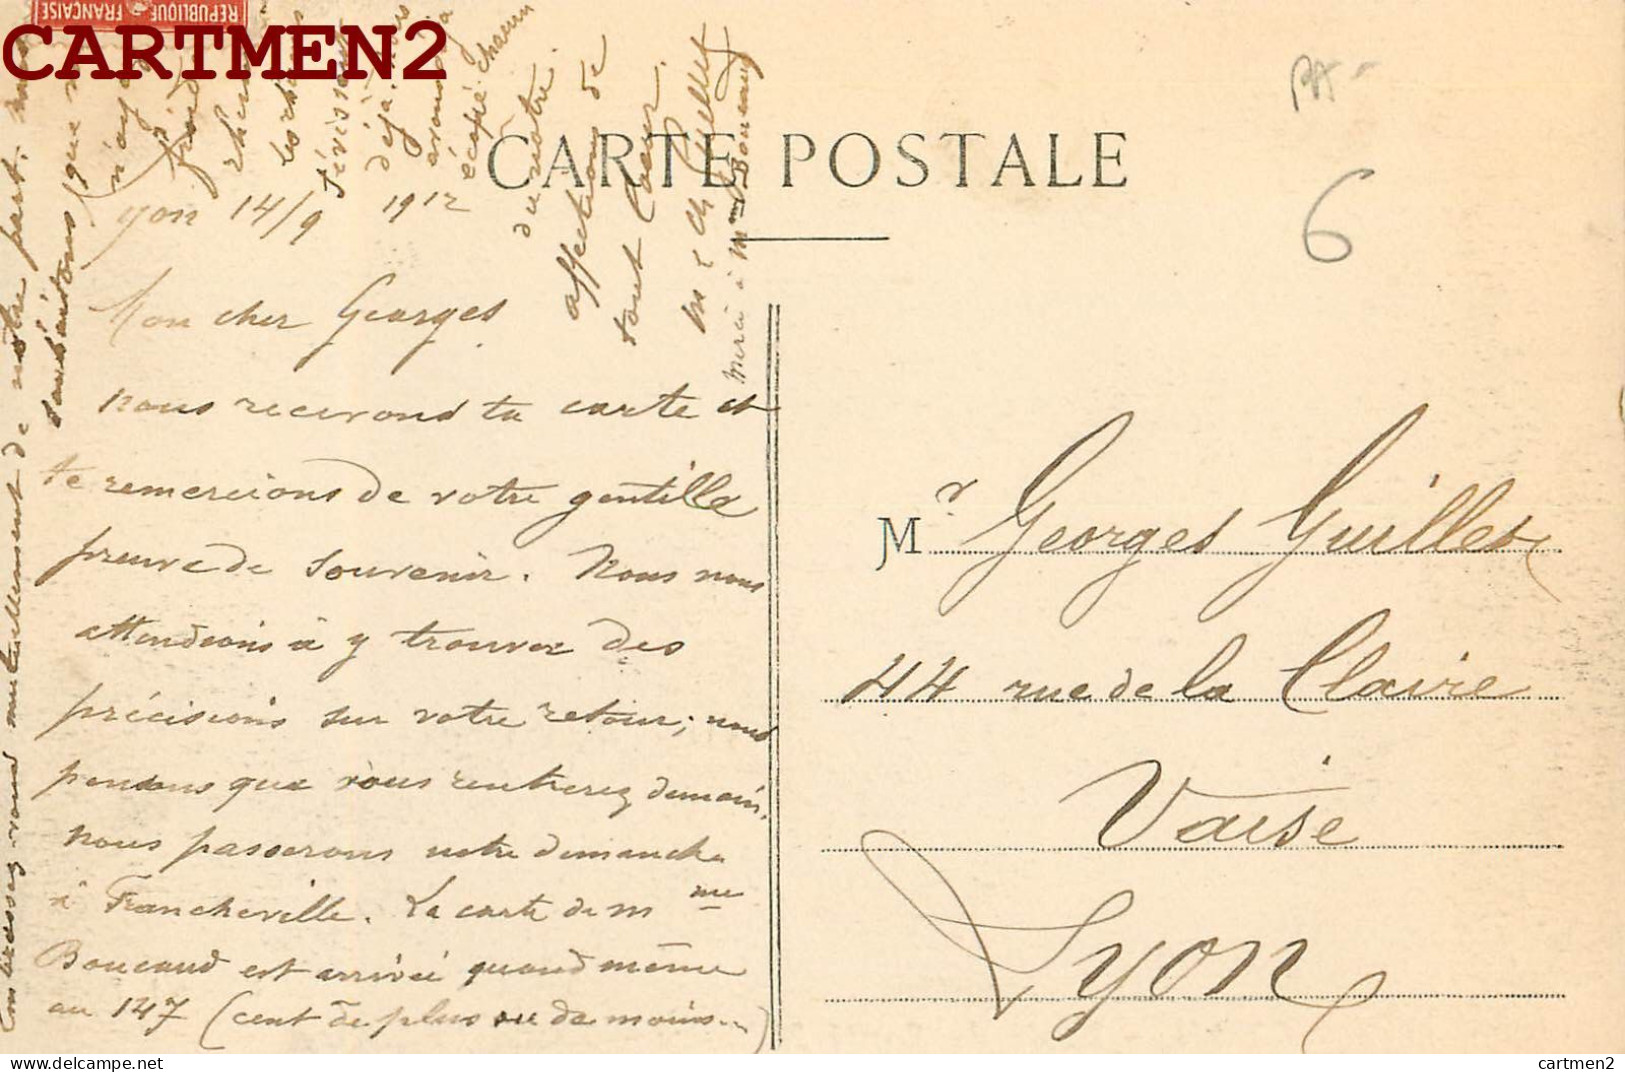 RÉPUBLIQUE FRANÇAISE
CARTMEN2
CARTE POSTALE
6
Lyon 14/9 1912
Mon cher Georges
nous recevons ta carte et
te remercions de votre gentille
preuve de souvenir. Nous nous
attendions à y trouver des
précisions sur votre retour; nous
pensons que vous rentrerez demain.
nous passerons notre dimanche
à Francheville. La carte de Mme
Boucaud est arrivée quand même
au 147 (cent de plus ou de moins...)
Embrassez-vous mutuellement de notre part, nous
souhaitons que
n'ayez
froid
rhumes
déjà
écopé chacun
du nôtre.
affections de
tout cœur.
M & Ch Guillet
Merci à Mme Boucaud
Mr Georges Guillet
44 rue de la Claire
Vaise
Lyon
cartmen2